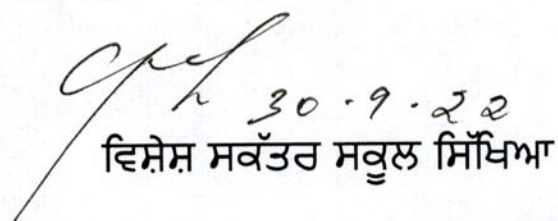 30.9.22
ਵਿਸ਼ੇਸ਼ ਸਕੱਤਰ ਸਕੂਲ ਸਿੱਖਿਆ